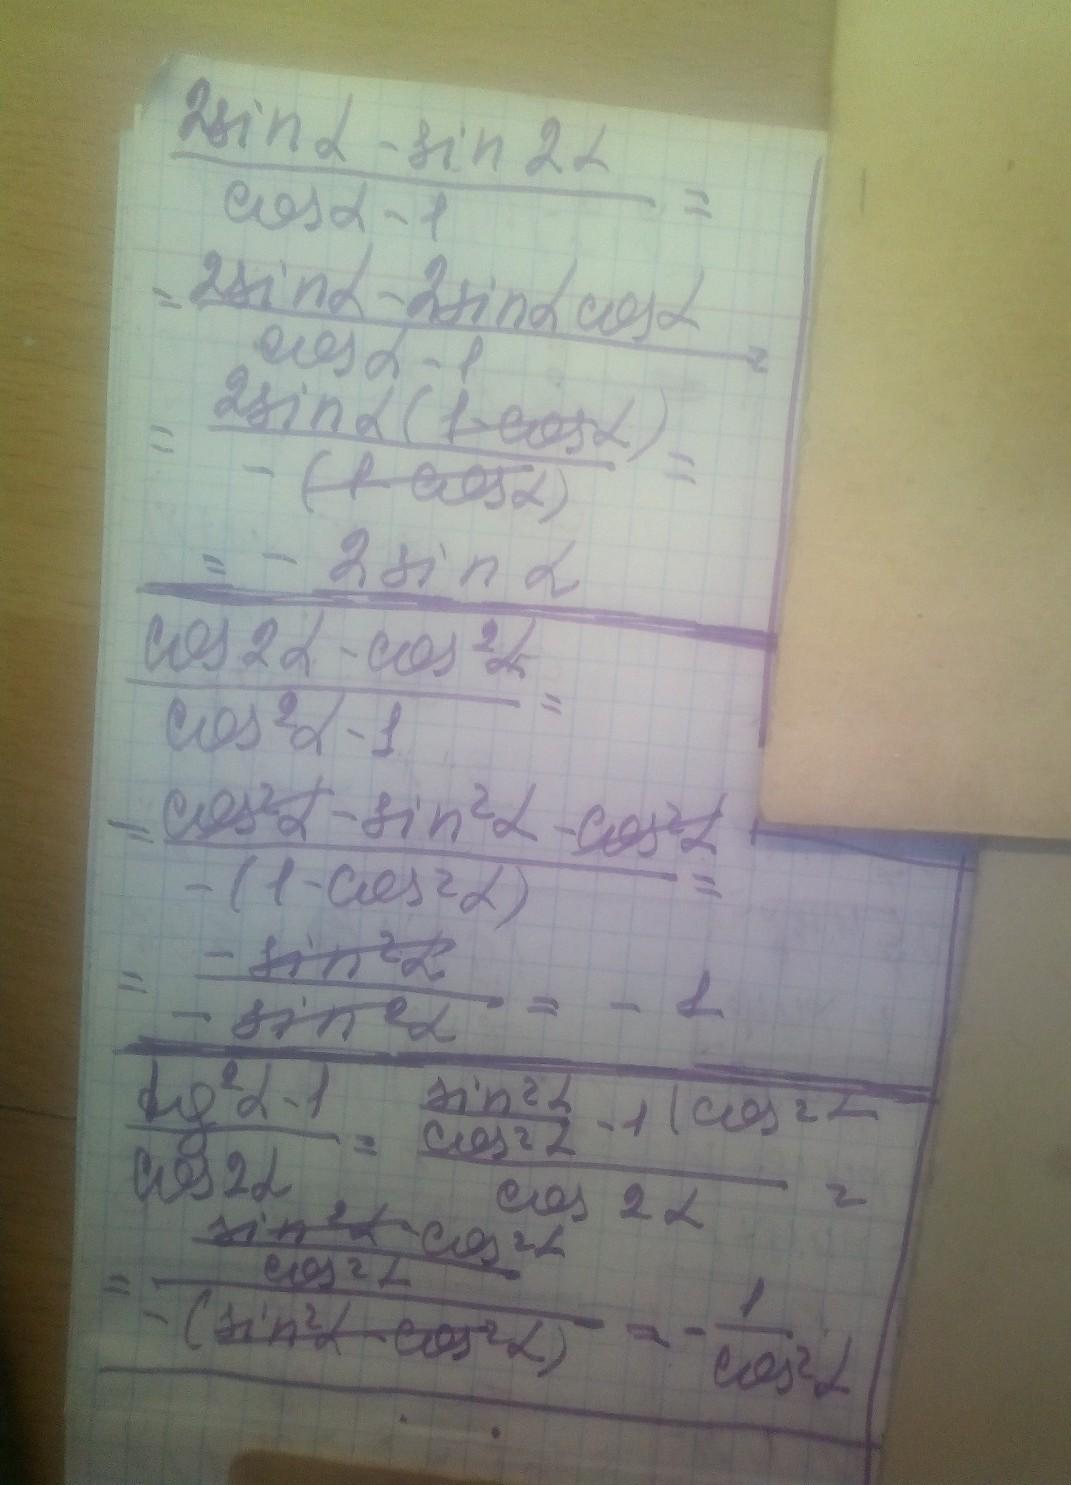 2sinα - sin 2α
cosα - 1 =
= 2sinα - 2sinα cosα
cosα - 1 =
= 2sinα (1 - cosα)
- (1 - cosα) =
= - 2 sin α
cos 2α - cos²α
cos²α - 1 =
= cos²α - sin²α - cos²α
- (1 - cos²α) =
= - sin²α
- sin²α = - 1
tg²α - 1
cos 2α =
sin²α
cos²α - 1 (cos²α
cos 2α =
= sin²α - cos²α
cos²α
- (sin²α - cos²α) = - 1
cos²α